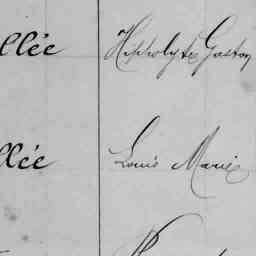 llée Hippolyte Gaston
llée Louis Marie